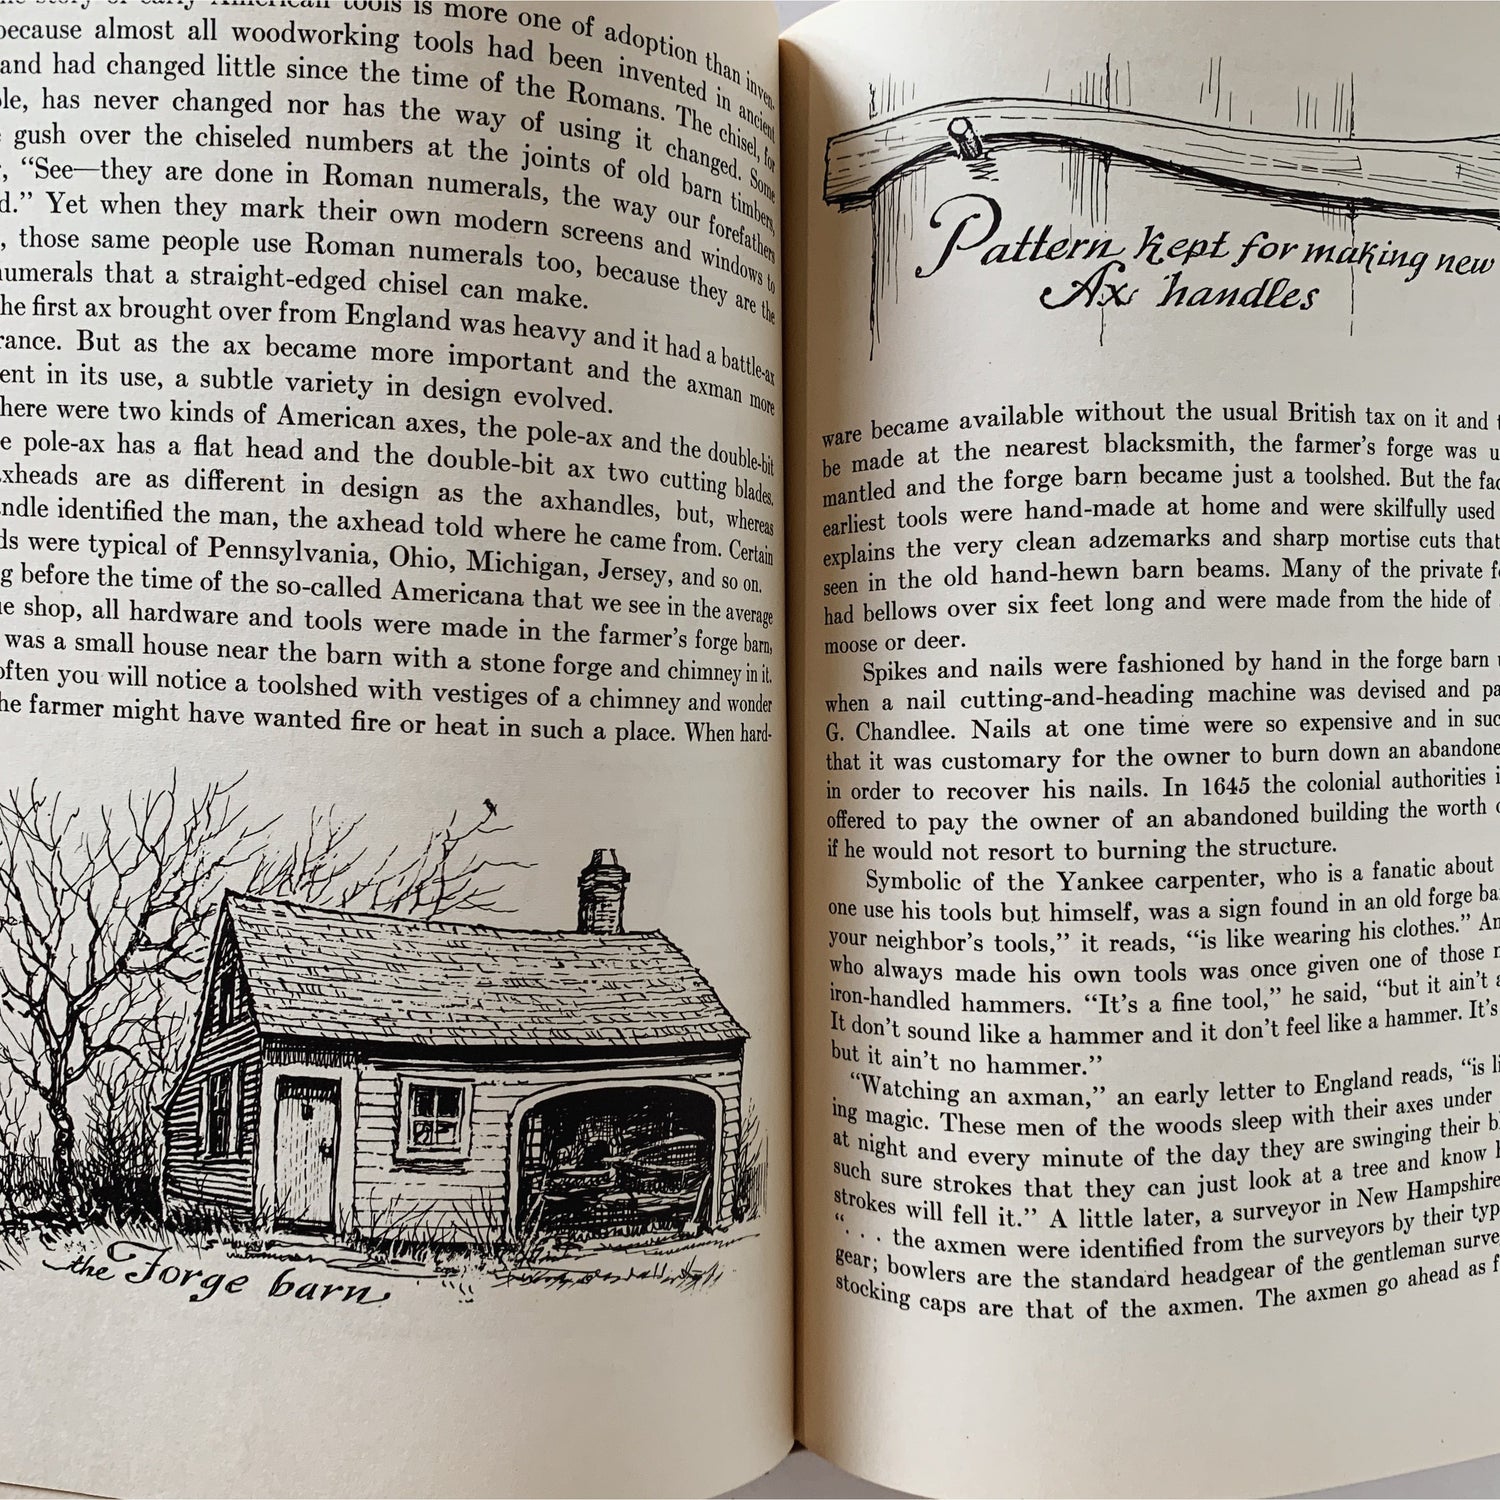 story of early American tools is more one of adoption than inven-
because almost all woodworking tools had been invented in ancient
and had changed little since the time of the Romans. The chisel, for
has never changed nor has the way of using it changed. Some
gush over the chiseled numbers at the joints of old barn timbers,
“See—they are done in Roman numerals, the way our forefathers
Yet when they mark their own modern screens and windows to
those same people use Roman numerals too, because they are the
numerals that a straight-edged chisel can make.
the first ax brought over from England was heavy and it had a battle-ax
But as the ax became more important and the axman more
in its use, a subtle variety in design evolved.
there were two kinds of American axes, the pole-ax and the double-bit
pole-ax has a flat head and the double-bit ax two cutting blades.
axheads are as different in design as the axhandles, but, whereas
identified the man, the axhead told where he came from. Certain
were typical of Pennsylvania, Ohio, Michigan, Jersey, and so on.
before the time of the so-called Americana that we see in the average
shop, all hardware and tools were made in the farmer’s forge barn,
was a small house near the barn with a stone forge and chimney in it.
often you will notice a toolshed with vestiges of a chimney and wonder
the farmer might have wanted fire or heat in such a place. When hard-
the Forge barn
Pattern kept for making new
Ax handles
ware became available without the usual British tax on it and
be made at the nearest blacksmith, the farmer’s forge was
mantled and the forge barn became just a toolshed. But the
earliest tools were hand-made at home and were skilfully used
explains the very clean adzemarks and sharp mortise cuts that
seen in the old hand-hewn barn beams. Many of the private
had bellows over six feet long and were made from the hide of
moose or deer.
Spikes and nails were fashioned by hand in the forge barn
when a nail cutting-and-heading machine was devised and
G. Chandlee. Nails at one time were so expensive and in
that it was customary for the owner to burn down an
in order to recover his nails. In 1645 the colonial authorities
offered to pay the owner of an abandoned building the worth
if he would not resort to burning the structure.
Symbolic of the Yankee carpenter, who is a fanatic about
one use his tools but himself, was a sign found in an old forge
your neighbor’s tools,” it reads, “is like wearing his clothes.”
who always made his own tools was once given one of those
iron-handled hammers. “It’s a fine tool,” he said, “but it ain’t
It don’t sound like a hammer and it don’t feel like a hammer. It’s
but it ain’t no hammer.”
“Watching an axman,” an early letter to England reads, “is
ing magic. These men of the woods sleep with their axes under
at night and every minute of the day they are swinging their
such sure strokes that they can just look at a tree and know
strokes will fell it.” A little later, a surveyor in New Hampshire
“. . . the axmen were identified from the surveyors by their
gear; bowlers are the standard headgear of the gentleman
stocking caps are that of the axmen. The axmen go ahead as